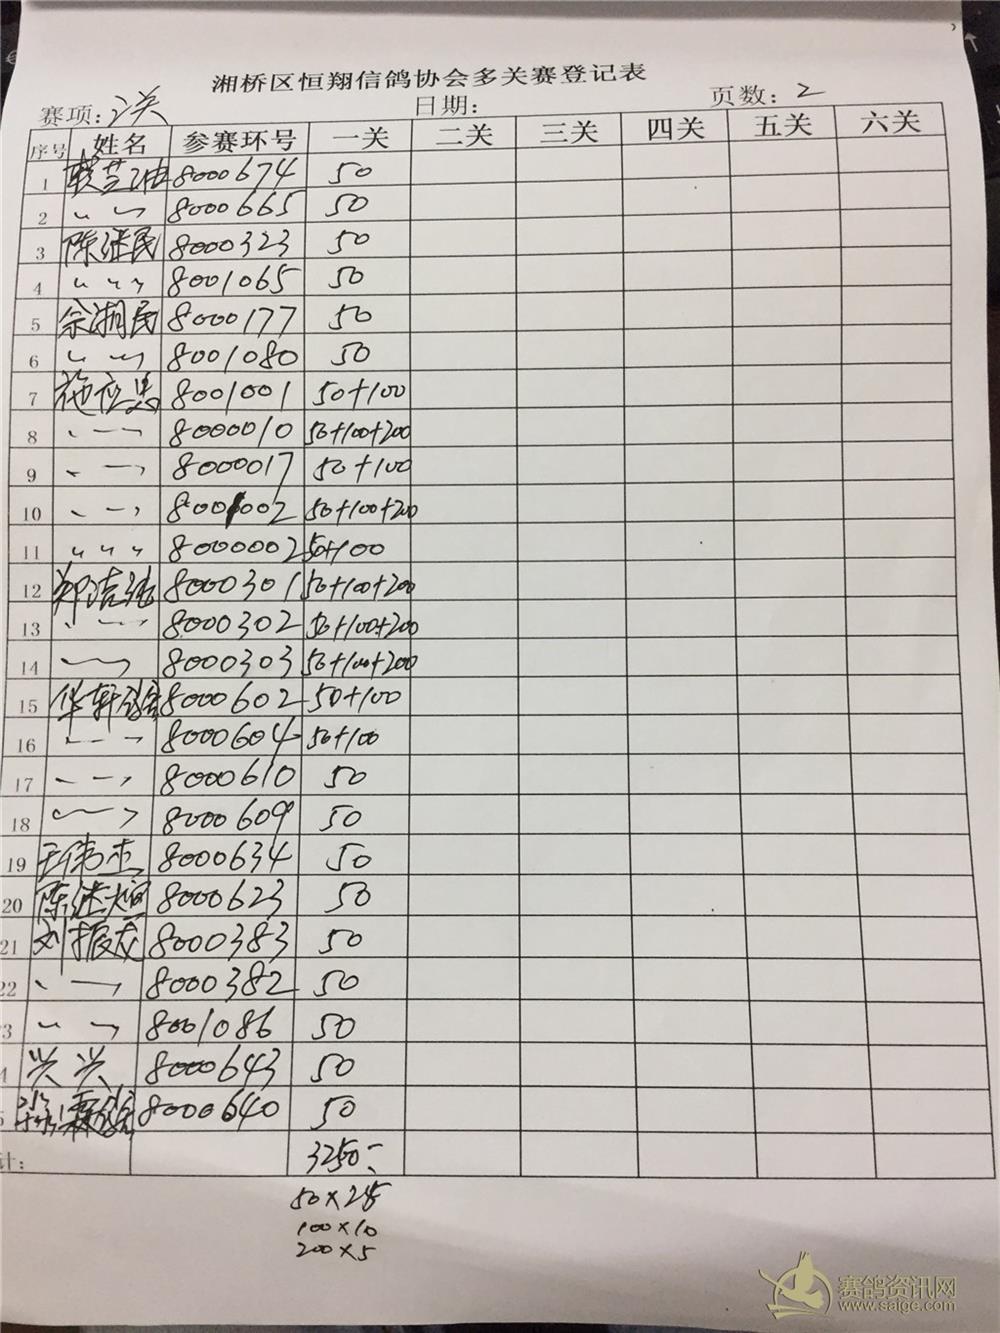 湘桥区恒翔信鸽协会多关赛登记表
赛项: 2关 日期: 页数: 2
序号 姓名 参赛环号 一关 二关 三关 四关 五关 六关
1 8000674 50
2 〃 〃 8000665 50
3 陈继民 8000323 50
4 〃 〃 〃 8001065 50
5 佘湘民 8000177 50
6 〃 〃 8001080 50
7 施应忠 8001001 50+100
8 〃 〃 8000010 50+100+200
9 〃 〃 8000017 50+100
10 〃 〃 8001002 50+100+200
11 〃 〃 〃 8000002 50+100
12 郑洁 8000301 50+100+200
13 〃 〃 8000302 50+100+200
14 〃 8000303 50+100+200
15 华轩鸽舍 8000602 50+100
16 〃 〃 8000604 50+100
17 〃 〃 8000610 50
18 〃 8000609 50
19 王伟杰 8000634 50
20 陈继煊 8000623 50
21 刘振龙 8000383 50
22 〃 〃 8000382 50
3 〃 〃 8001086 50
4 兴兴 8000643 50
5 霖鸽舍 8000640 50
计: 3250-
50×25
100×10
200×5
赛鸽资讯网
www.saige.com